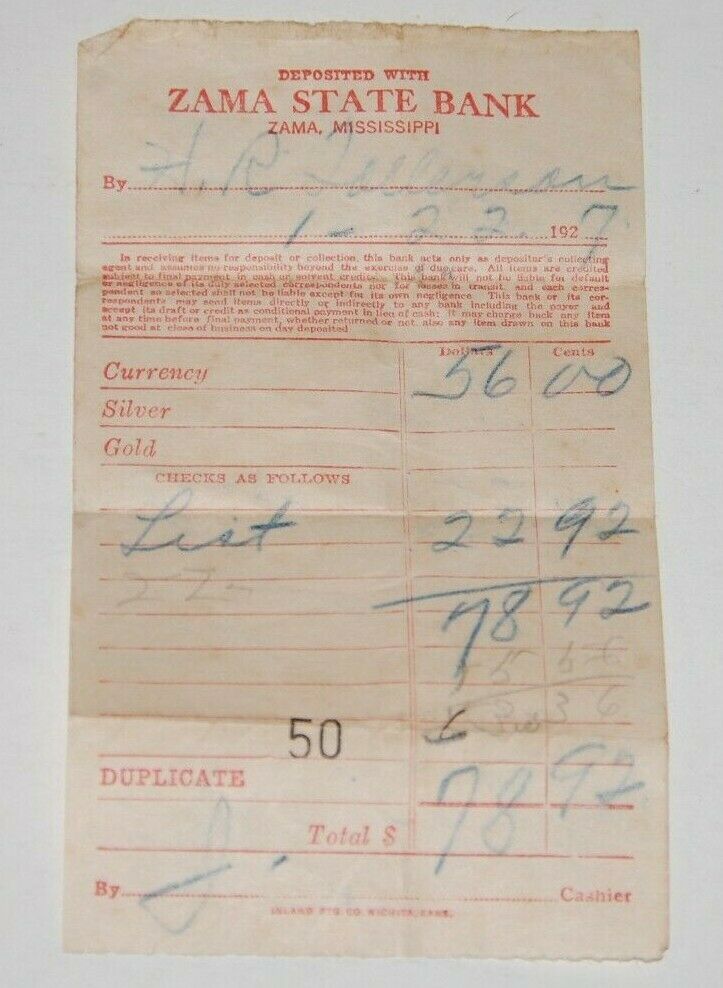 DEPOSITED WITH
ZAMA STATE BANK
ZAMA, MISSISSIPPI
By H. R.
1-22. 1927
In receiving items for deposit or collection, this bank acts only as depositor's collecting
agent and assumes no responsibility beyond the exercise of due care. All items are credited
subject to final payment in cash or solvent credits. This bank will not be liable for default
or negligence of its duly selected correspondents nor for losses in transit, and each corres-
pondent so selected shall not be liable except for its own negligence. This bank or its cor-
respondents may send items directly or indirectly to any bank including the payor and
accept its draft or credit as conditional payment in lieu of cash; it may charge back any item
at any time before final payment, whether returned or not, also any item drawn on this bank
not good at close of business on day deposited
Dollars Cents
Currency 56 00
Silver
Gold
CHECKS AS FOLLOWS
List 22 92
22-
78 92
36
50
DUPLICATE
Total $ 78 92
By Cashier
INLAND PTG CO. WICHITA, KANS.